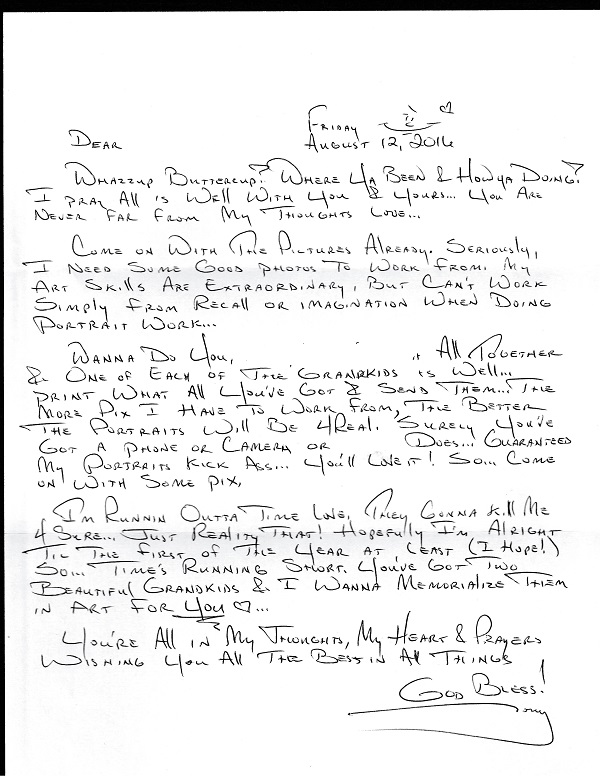 Friday
August 12, 2016
Dear
Whazzup Buttercup? Where Ya Been & How ya Doing?
I pray All is Well With You & Yours... You Are
Never Far From My Thoughts Love...
Come on With The Pictures Already. Seriously,
I Need Some Good photos To Work From. My
Art Skills Are Extraordinary, But Can't Work
Simply From Recall or imagination When Doing
Portrait Work...
Wanna Do You, All Together
& One of Each of The Grandkids is Well...
print What All You've Got & Send Them... The
More Pix I Have To Work From, The Better
The Portraits Will Be 4Real. Surely You've
Got A phone or Camera or Does... Guaranteed
My Portraits Kick Ass... You'll Love it! So... Come
on With Some pix,
I'm Runnin Outta Time Love, They Gonna Kill Me
4 Sure... Just Reality That! Hopefully I'm Alright
Til The First of The Year At Least (I Hope!)
So... Time's Running Short. You've Got Two
Beautiful Grandkids & I Wanna Memorialize Them
in Art For You ♡...
You're All in My Thoughts, My Heart & Prayers
Wishing You All The Best in All Things
God Bless!